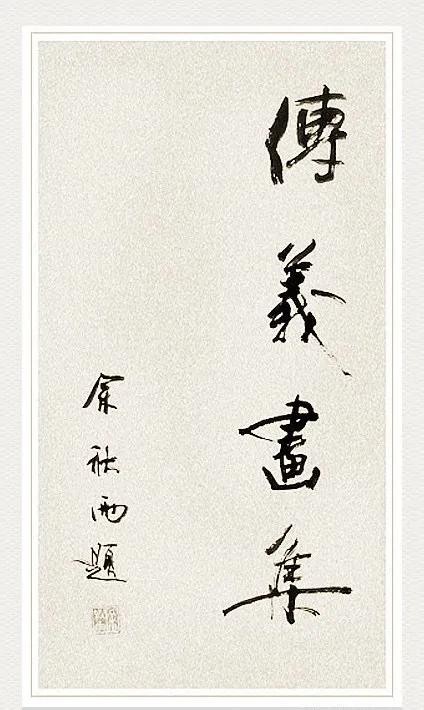 傅義畫集
余秋雨題